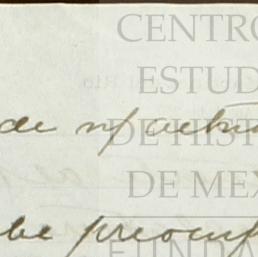 CENTRO
ESTUD
de n/ actu
DE HIST
DE MEX
be preocup
FUNDA